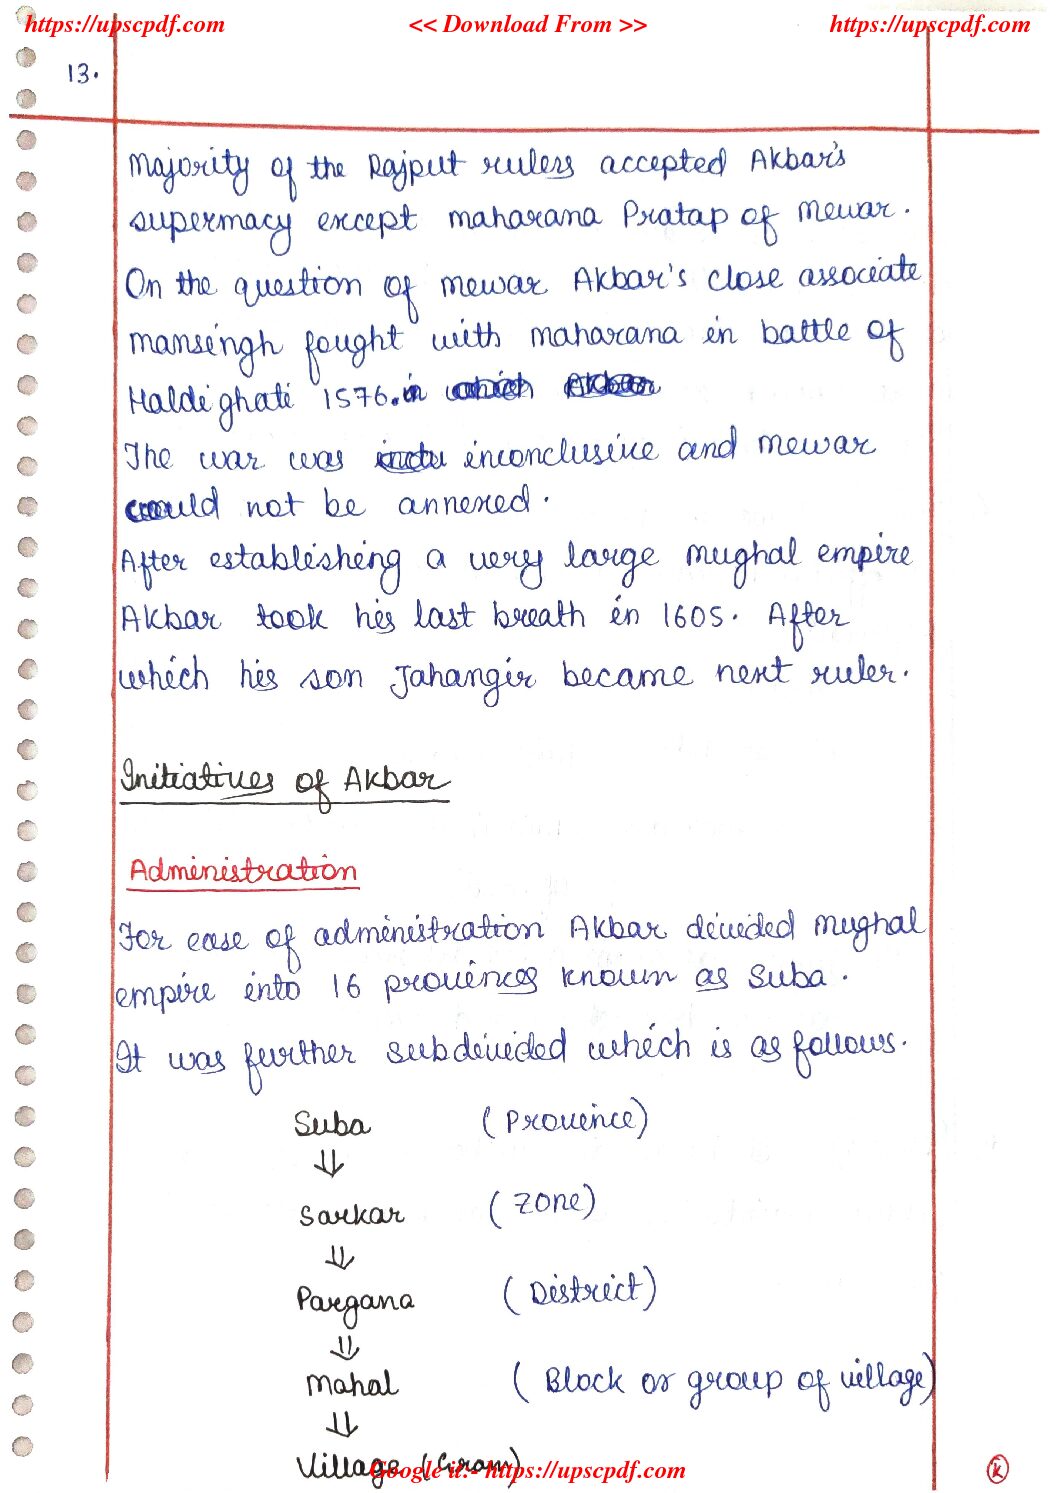 https://upscpdf.com << Download From >> https://upscpdf.com
13.
Majority of the Rajput rulers accepted Akbar's
supermacy except maharana Pratap of mewar.
On the question of mewar Akbar's close associate
mansingh fought with maharana in battle of
Haldighati 1576. in which Akbar
The war was inconclusive and mewar
could not be annexed.
After establishing a very large mughal empire
Akbar took his last breath in 1605. After
which his son Jahangir became next ruler.
Initiatives of Akbar
Administration
For ease of administration Akbar divided mughal
empire into 16 provinces known as Suba.
It was further subdivided which is as follows.
Suba (Province)
⇓
Sarkar (Zone)
⇓
Pargana (District)
⇓
Mahal (Block or group of village)
⇓
Village (Gram)
Google it:- https://upscpdf.com
K